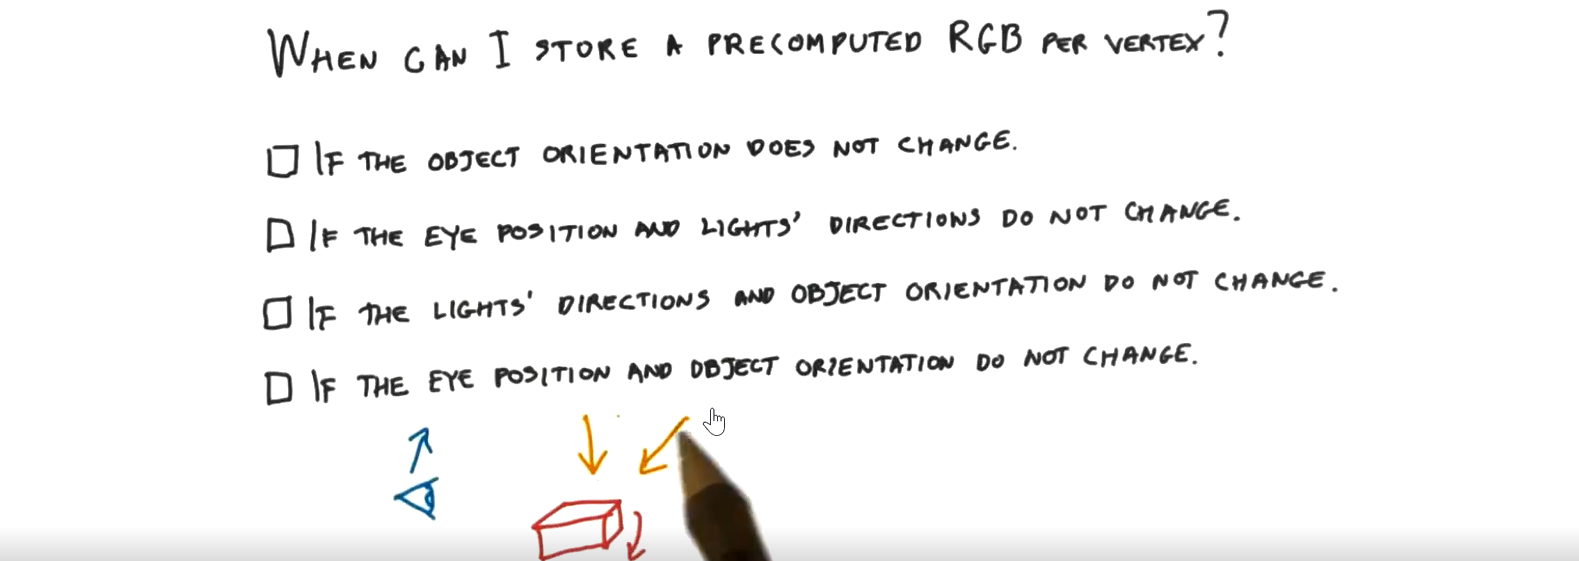 WHEN CAN I STORE A PRECOMPUTED RGB PER VERTEX?
IF THE OBJECT ORIENTATION DOES NOT CHANGE.
IF THE EYE POSITION AND LIGHTS' DIRECTIONS DO NOT CHANGE.
IF THE LIGHTS' DIRECTIONS AND OBJECT ORIENTATION DO NOT CHANGE.
IF THE EYE POSITION AND OBJECT ORIENTATION DO NOT CHANGE.